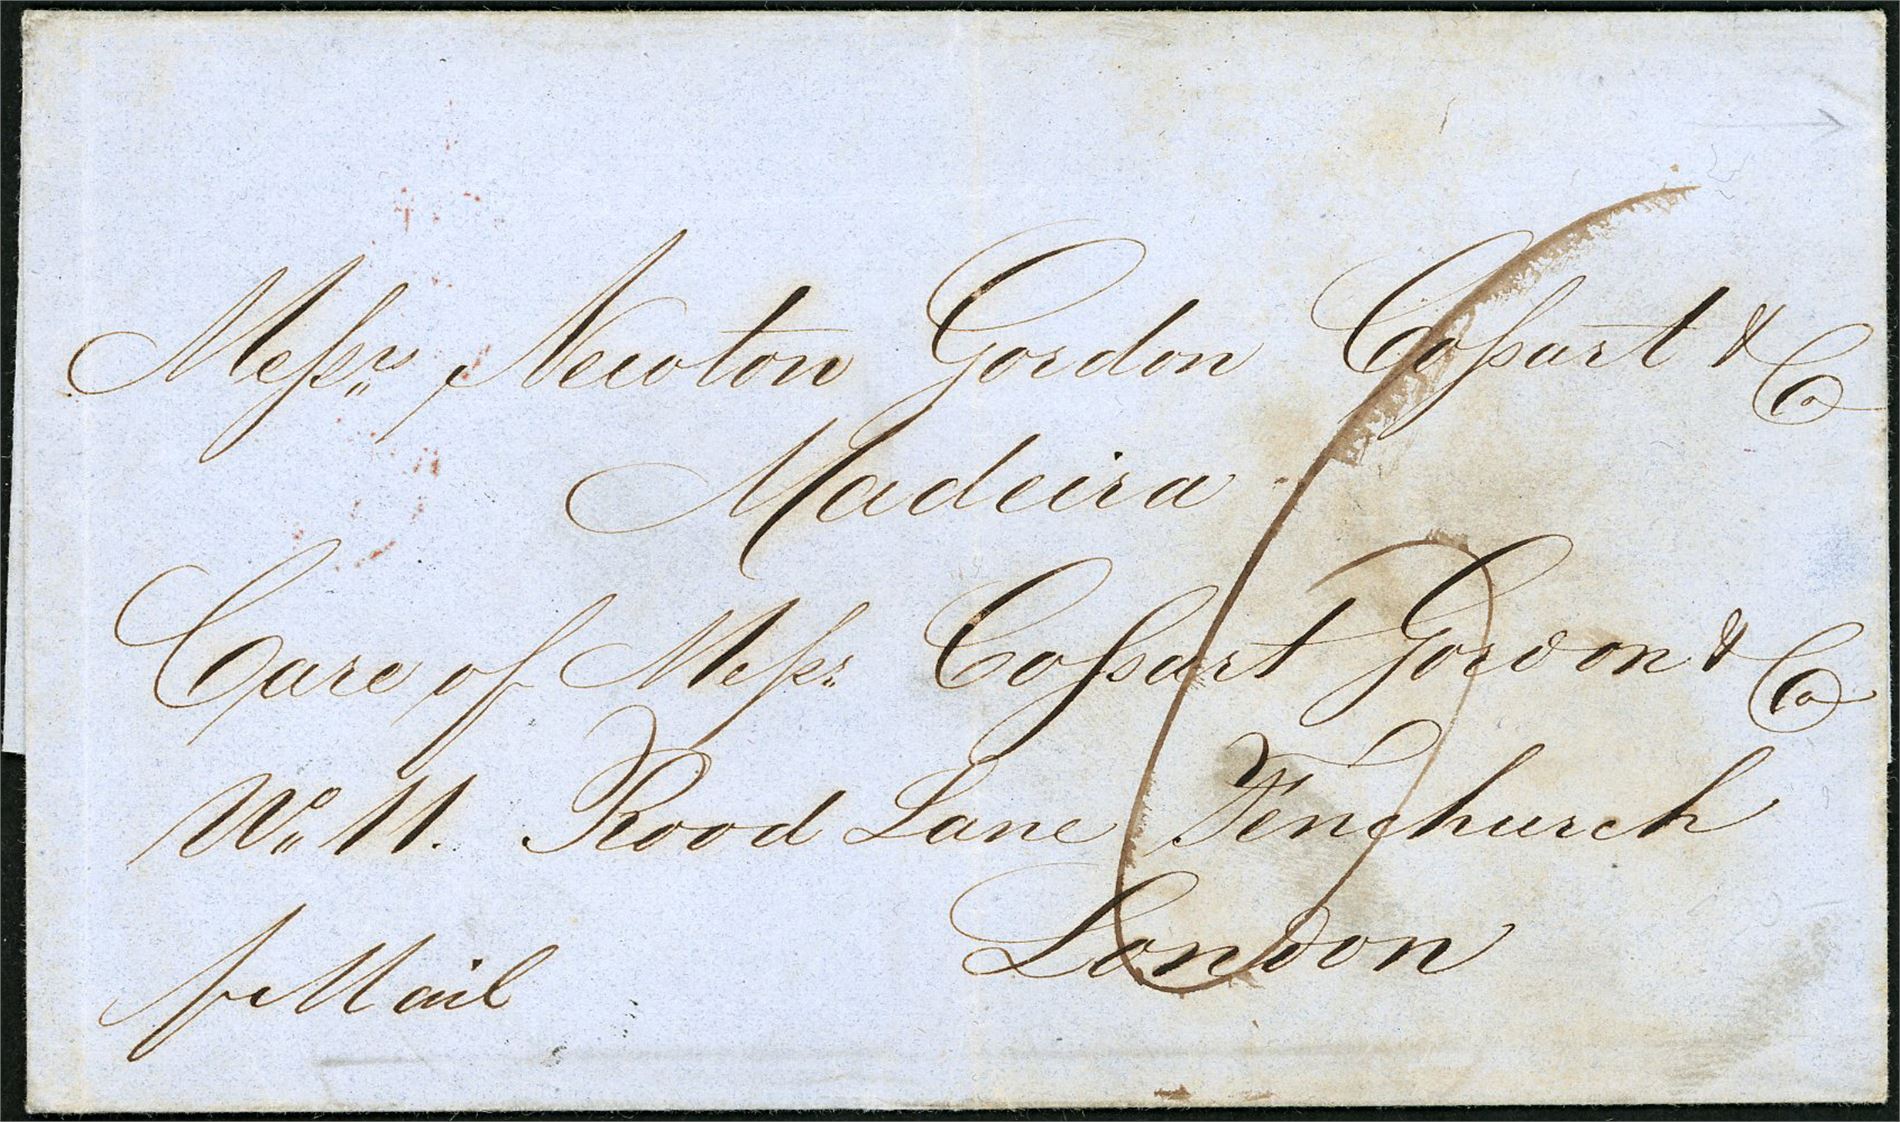 Messrs Newton Gordon Cossart & Co
Madeira
Care of Messrs Cossart Gordon & Co
No 11. Rood Lane Fenchurch
London
p Mail
6